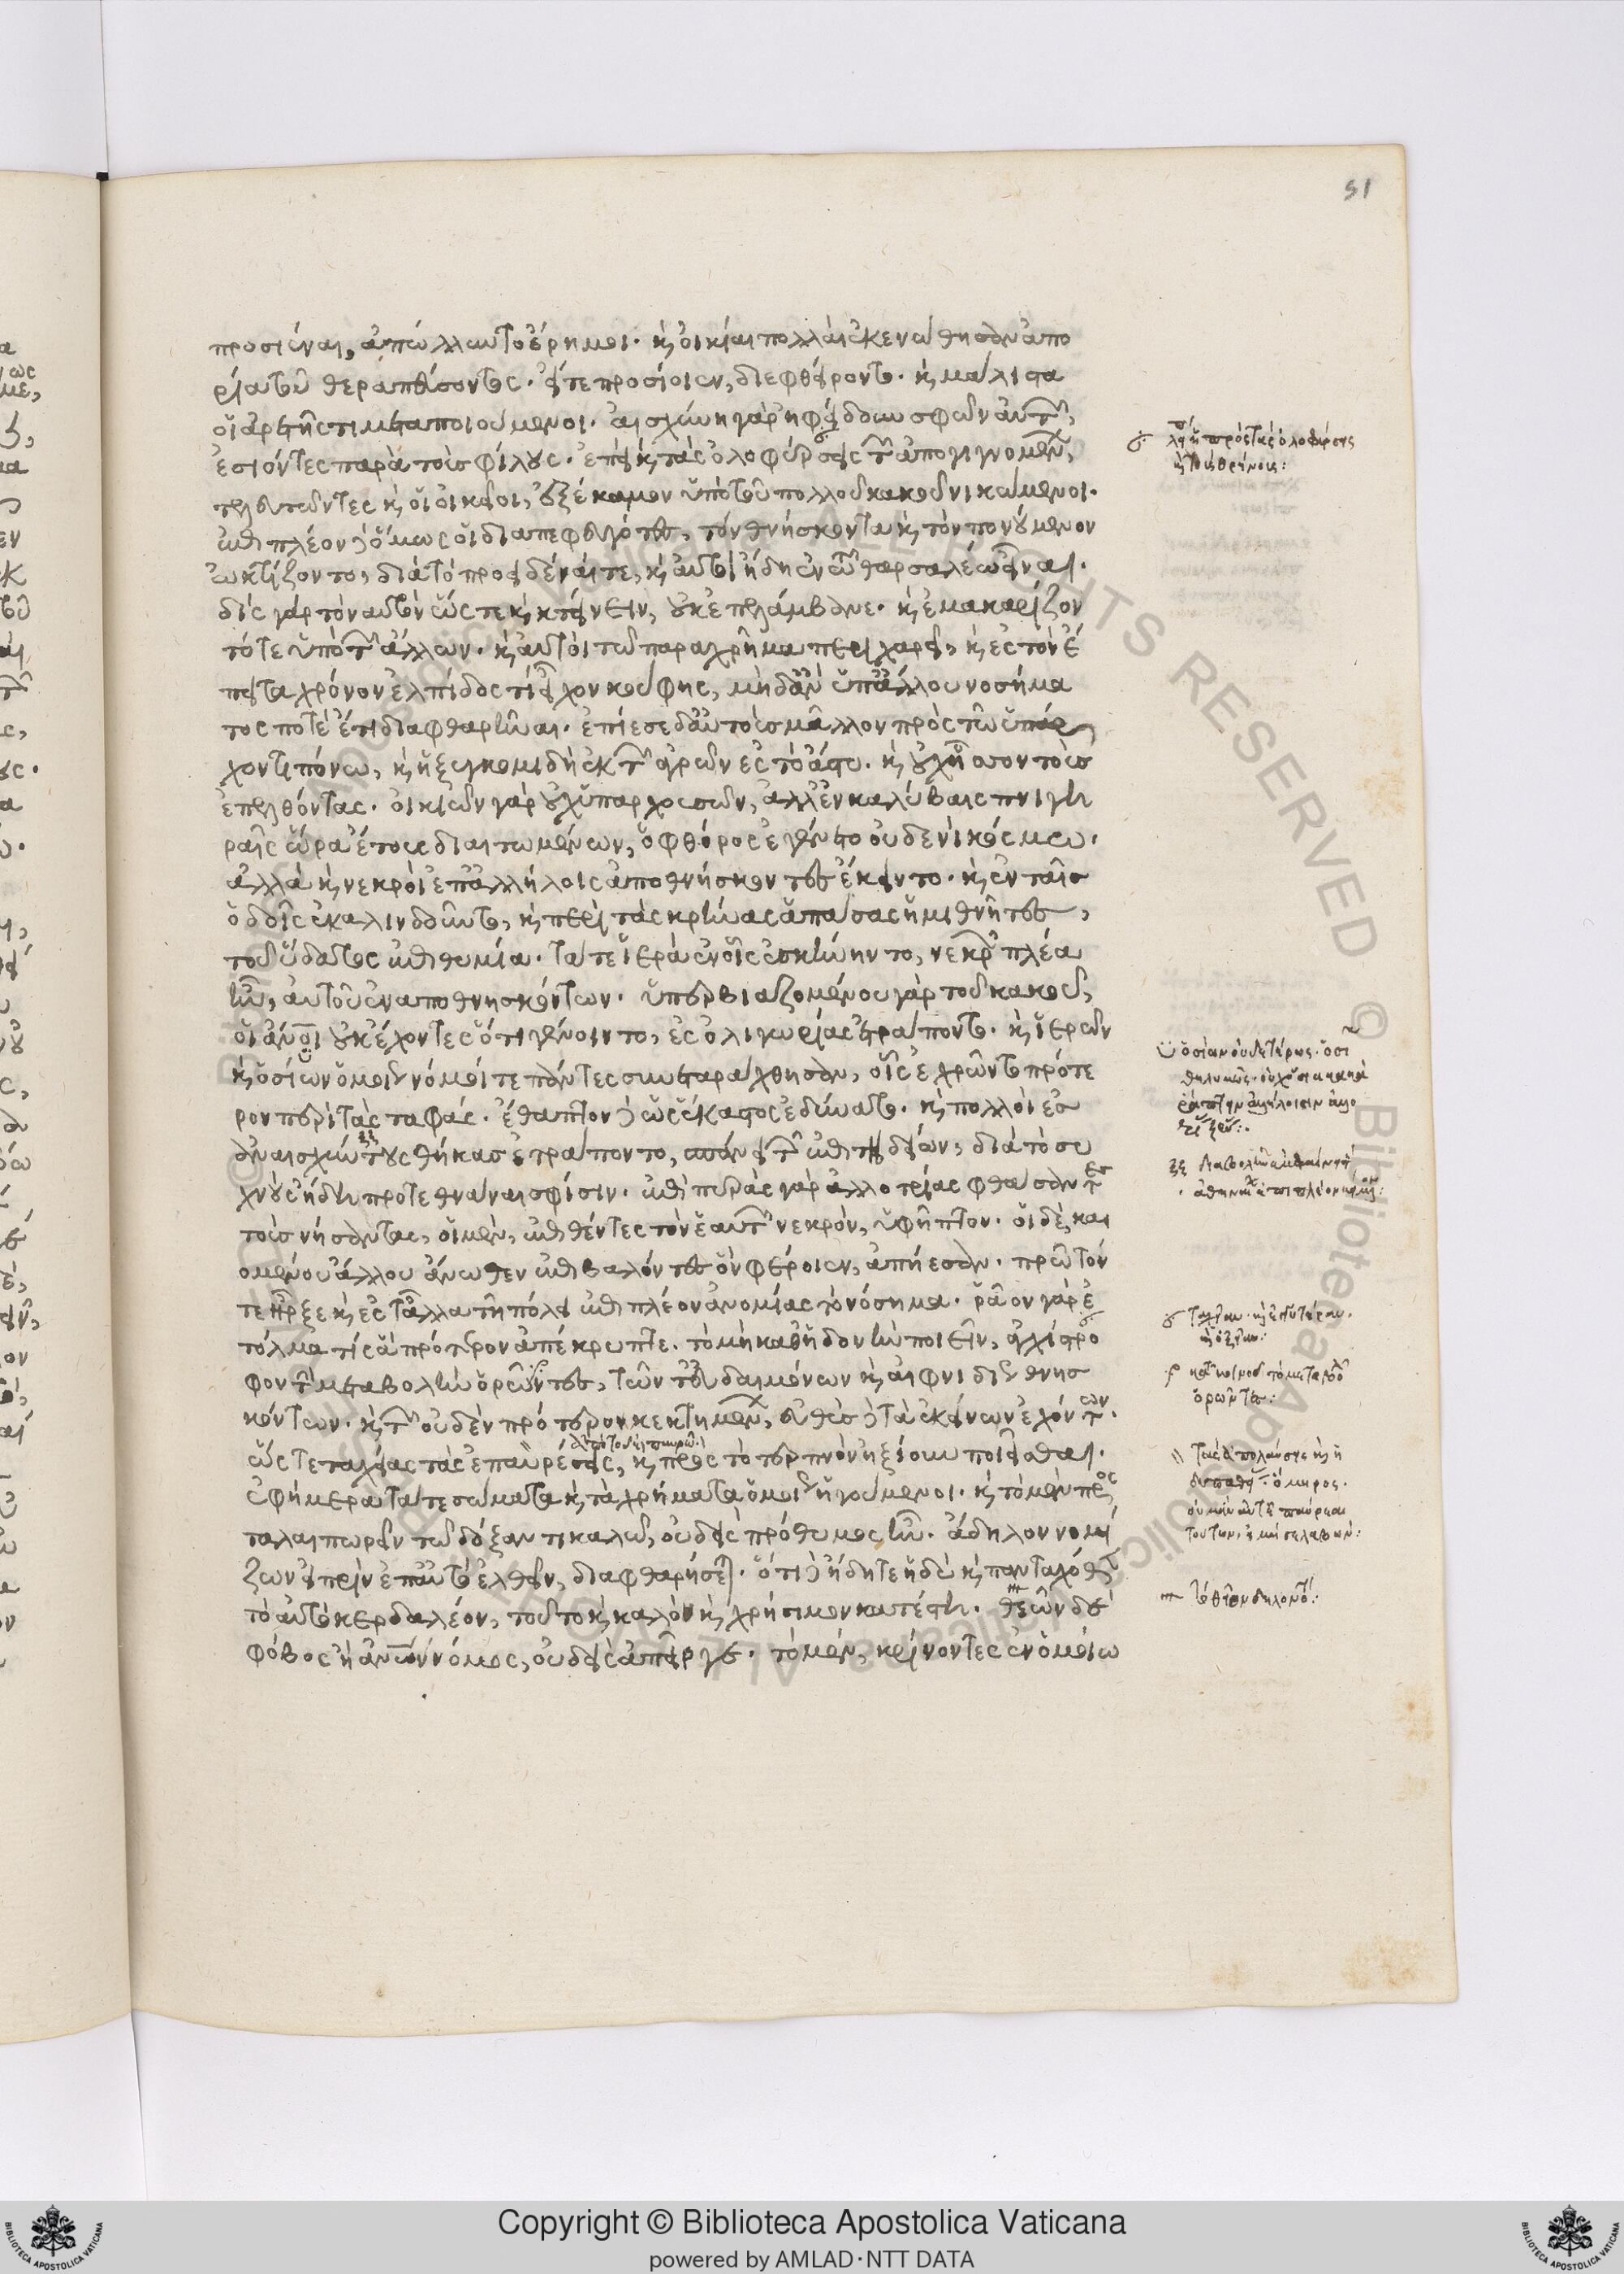 51
προσιέναι, ἀπώλλυντο ἐρῆμοι· κ̀ οἰκίαι πολλαὶ ἐκενώθησαν ἀπο
ρίᾳ τοῦ θεραπεύσοντος· εἴτε προσίοιεν, διεφθείροντο· κ̀ μάλιστα
οἱ ἀρετῆς τι μεταποιούμενοι· αἰσχύνη γὰρ ἠφείδουν σφῶν αὐτῶν,
ἐσιόντες παρὰ τοὺς φίλους· ἐπεὶ κ̀ τὰς ὀλοφύρσεις τῶν ἀπογιγνομένων,
τελευτῶντες κ̀ οἱ οἰκεῖοι, ἐξέκαμον ὑπὸ τοῦ πολλοῦ κακοῦ νικώμενοι·
ἐπὶ πλέον δ' ὅμως οἱ διαπεφευγότες, τὸν θνήσκοντα κ̀ τὸν πονούμενον
ᾠκτίζοντο, διὰ τὸ προειδέναι τε, κ̀ αὐτοὶ ἤδη ἐν τῷ θαρσαλέῳ εἶναι·
δὶς γὰρ τὸν αὐτὸν ὥστε κ̀ κτείνειν, οὐκ ἐπελάμβανε· κ̀ ἐμακαρίζον
τό τε ὑπὸ τῶν ἄλλων· κ̀ αὐτοὶ τῷ παραχρῆμα περιχαρεῖ, κ̀ ἐς τὸν ἔ
πειτα χρόνον ἐλπίδος τι εἶχον κούφης, μηδ' ἂν ὑπ' ἄλλου νοσήμα
τος ποτὲ ἔτι διαφθαρῆναι· ἐπίεσε δ' αὐτοὺς μᾶλλον πρὸς τῷ ὑπάρ
χοντι πόνῳ, κ̀ ἡ ξυγκομιδὴ ἐκ τῶν ἀγρῶν ἐς τὸ ἄστυ· κ̀ οὐχ ἧσσον τοὺς
ἐπελθόντας· οἰκιῶν γὰρ οὐχ ὑπαρχουσῶν, ἀλλ' ἐν καλύβαις πνιγη
ραῖς ὥρᾳ ἔτους διαιτωμένων, ὁ φθόρος ἐγένετο οὐδενὶ κόσμῳ·
ἀλλὰ κ̀ νεκροὶ ἐπ' ἀλλήλοις ἀποθνήσκοντες ἔκειντο· κ̀ ἐν ταῖς
ὁδοῖς ἐκαλινδοῦντο, κ̀ περὶ τὰς κρήνας ἁπάσας ἡμιθνῆτες,
τοῦ ὕδατος ἐπιθυμίᾳ· τά τε ἱερὰ ἐν οἷς ἐσκήνηντο, νεκρῶν πλέα
ἦν, αὐτοῦ ἐναποθνησκόντων· ὑπερβιαζομένου γὰρ τοῦ κακοῦ,
οἱ ἄνοι οὐκ ἔχοντες ὅτι γένοιντο, ἐς ὀλιγωρίας ἐτράποντο· κ̀ ἱερῶν
κ̀ ὁσίων ὁμοίως νόμοι τε πάντες συνεταράχθησαν, οἷς ἐχρῶντο πρότε
ρον περὶ τὰς ταφάς· ἔθαπτον δ' ὡς ἕκαστος ἐδύνατο· κ̀ πολλοὶ ἐς
ἀναισχύντους θήκας ἐτράποντο, σπάνει τῶν ἐπιτηδείων, διὰ τὸ συ
χνοὺς ἤδη προτεθνάναι σφίσιν· ἐπὶ πυρὰς γὰρ ἀλλοτρίας φθάσαντες
τοὺς νήσαντας, οἱ μὲν, ἐπιθέντες τὸν ἑαυτῶν νεκρὸν, ὑφῆπτον· οἱ δὲ, και
ομένου ἄλλου ἄνωθεν ἐπιβαλόντες ὃν φέροιεν, ἀπῄεσαν· πρῶτόν
τε ἦρξε κ̀ ἐς τἆλλα τῇ πόλει ἐπὶ πλέον ἀνομίας τὸ νόσημα· ῥᾷον γὰρ ἐ
τόλμα τίς ἃ πρότερον ἀπεκρύπτετο μὴ καθ' ἡδονὴν ποιεῖν, ἀγχίστρο
φον τὴν μεταβολὴν ὁρῶντες, τῶν τ' εὐδαιμόνων κ̀ αἰφνιδίως θνησ
κόντων· κ̀ τῶν οὐδὲν πρότερον κεκτημένων, εὐθὺς δὲ τὰ ἐκείνων ἐχόντων·
ὥστε ταχείας τὰς ἐπαυρέσεις, κ̀ πρὸς τὸ τερπνὸν ἠξίουν ποιεῖσθαι·
ἐφήμερα τά τε σώματα κ̀ τὰ χρήματα ὁμοίως ἡγούμενοι· κ̀ τὸ μὲν προς
ταλαιπωρεῖν τῷ δόξαντι καλῷ, οὐδεὶς πρόθυμος ἦν· ἄδηλον νομί
ζων εἰ πρὶν ἐπ' αὐτὸ ἐλθεῖν, διαφθαρήσεται· ὅτι δὲ ἤδη τε ἡδὺ κ̀ πανταχόθεν
τὸ αὐτὸ κερδαλέον, τοῦτο κ̀ καλὸν κ̀ χρήσιμον κατέστη· θεῶν δὲ
φόβος ἢ ἀνων νόμος, οὐδεὶς ἀπεῖργε· τὸ μὲν, κρίνοντες ἐν ὁμοίῳ
Copyright © Biblioteca Apostolica Vaticana
powered by AMLAD·NTT DATA